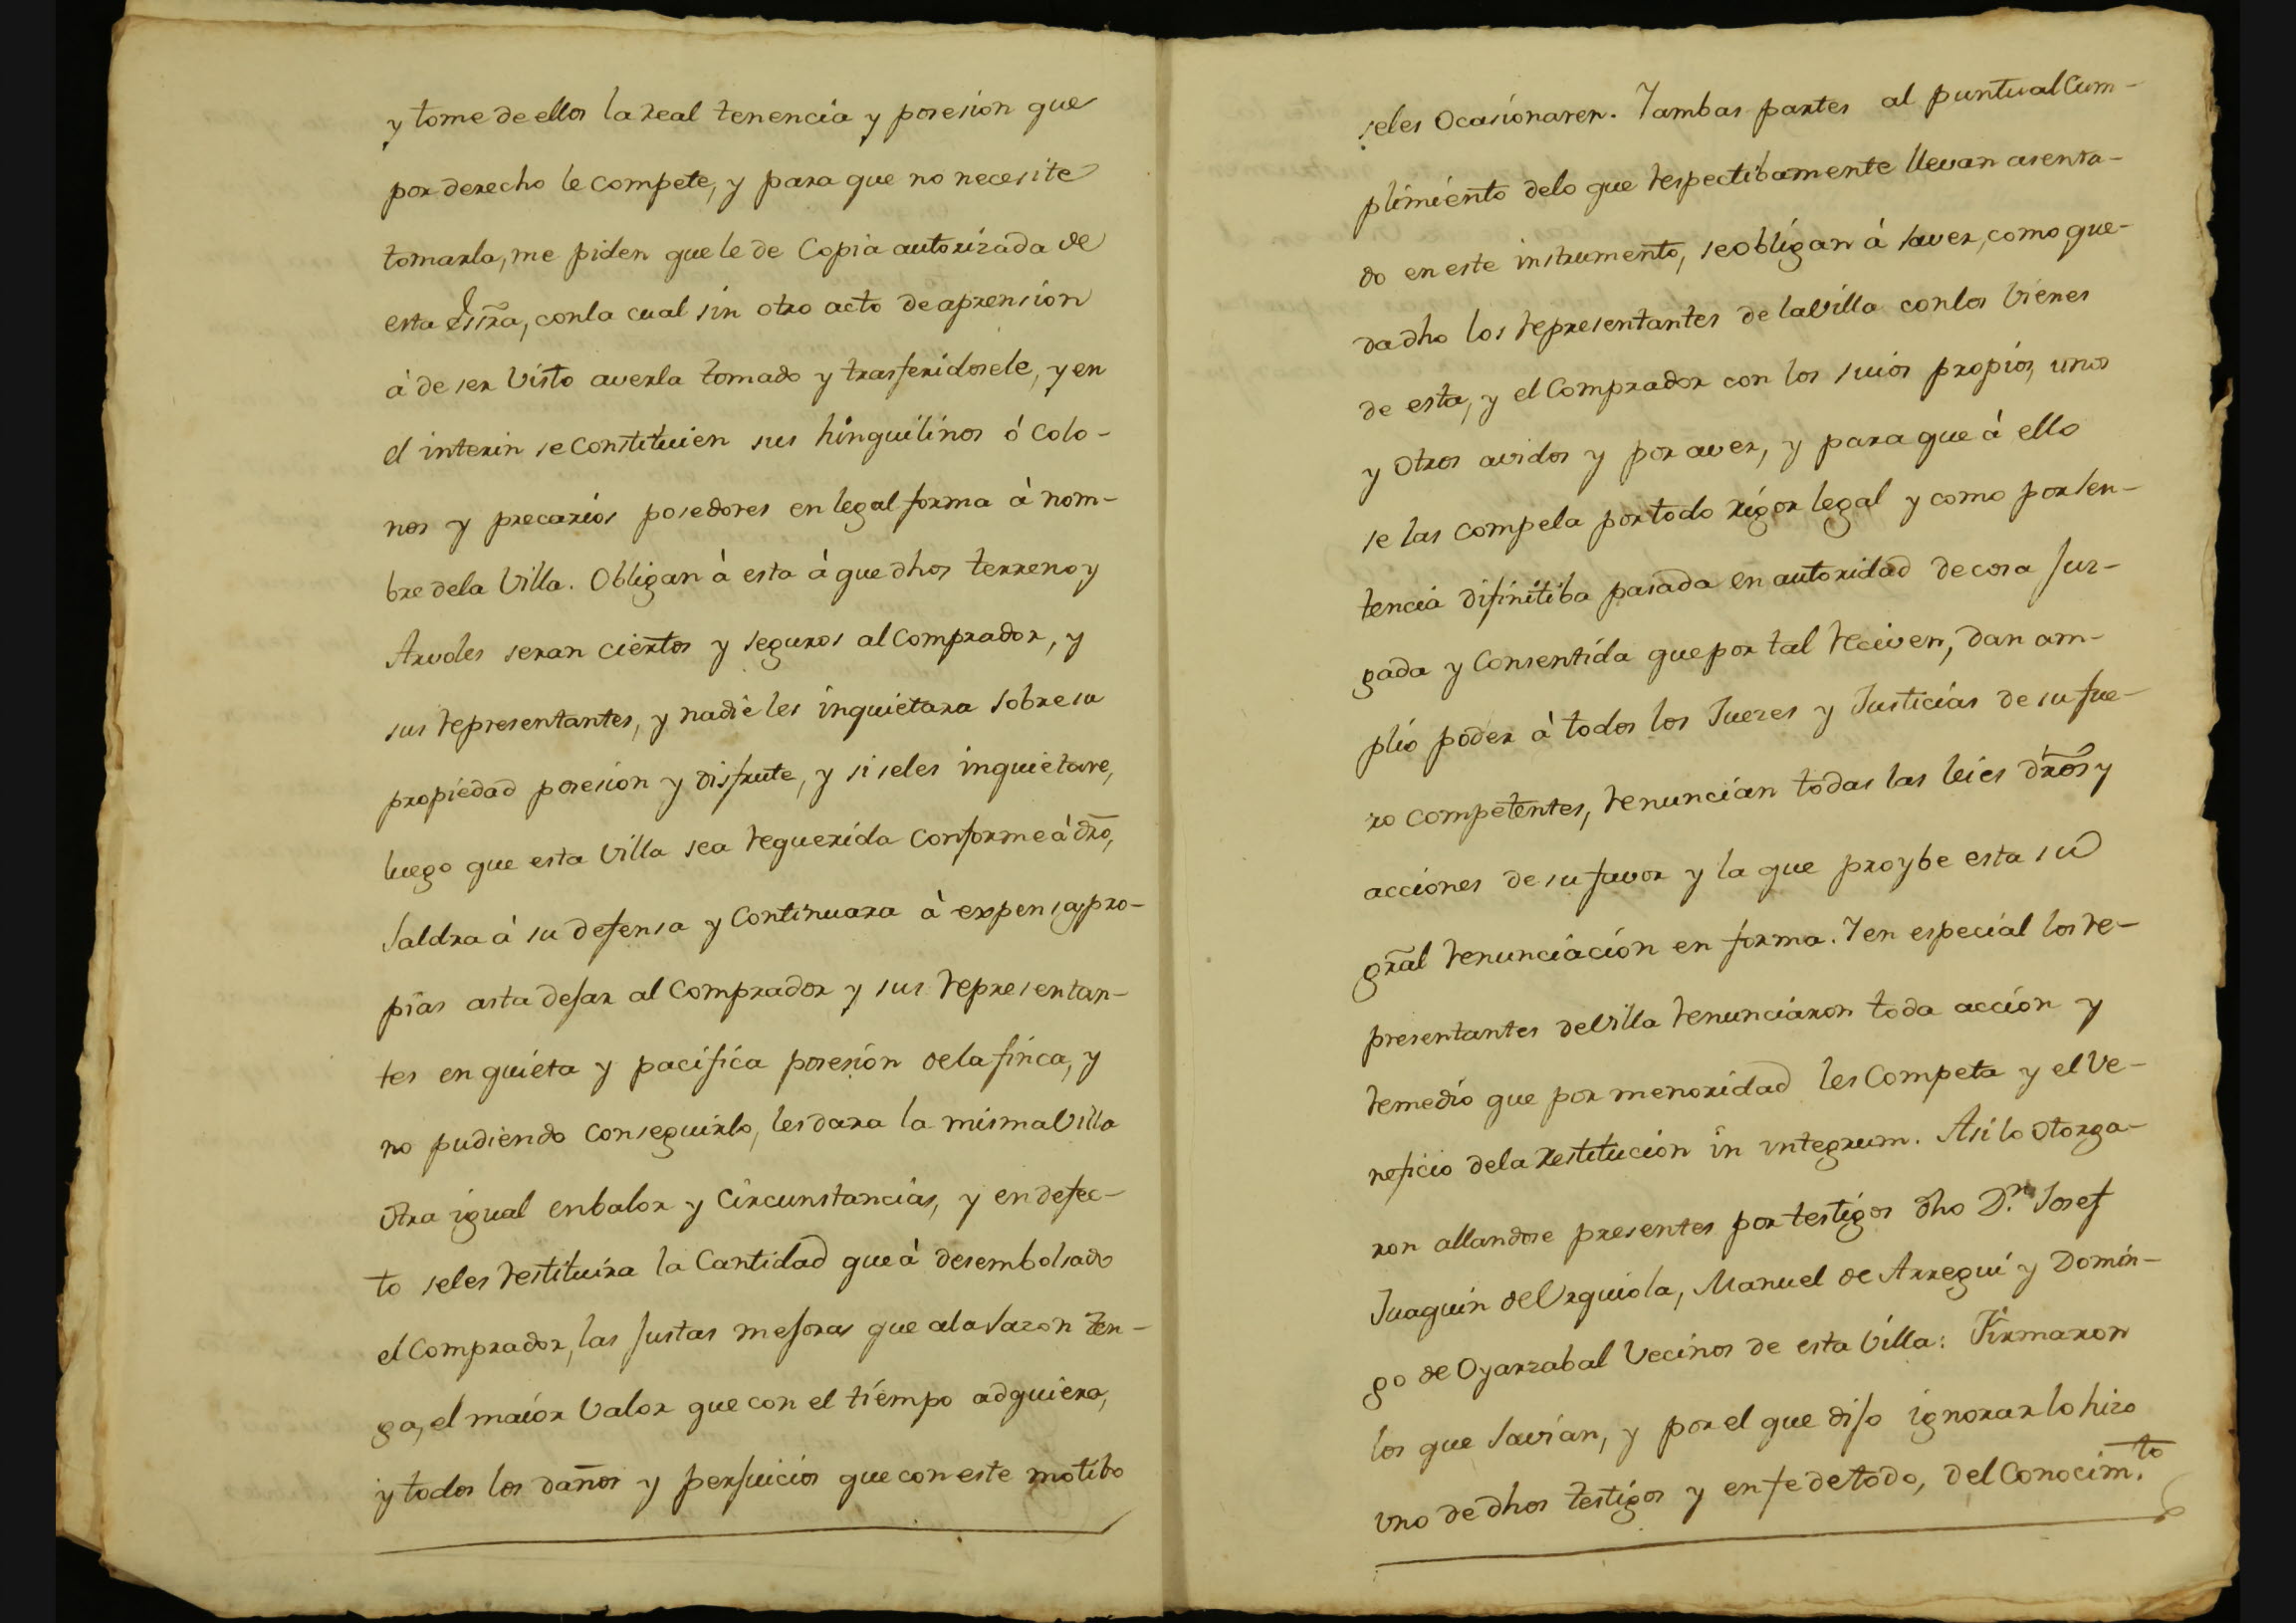 y tome de ellos la real tenencia y posesion que
por derecho le compete, y para que no necesite
tomarla, me piden que le de Copia autorizada de
esta Essra, con la cual sin otro acto de aprension
à de ser visto averla tomado y trasferidosele, y en
el interin se Constituien sus hinquilinos ó Colo-
nos y precarios posedores en legal forma à nom-
bre dela Villa. Obligan à esta à que dhos terreno y
Arvoles seran ciertos y seguros al Comprador, y
sus representantes, y nadie les inquietara sobre su
propiedad posesion y disfrute, y si seles inquietare,
luego que esta Villa sea requerida Conforme à dro,
Saldra à su defensa y Continuara à expensas pro-
pias asta dejar al Comprador y sus representan-
tes en quieta y pacifica posesion dela finca, y
no pudiendo Conseguirlo, les dara la misma Villa
otra igual en balor y Circunstancias, y en defec-
to seles restituira la Cantidad que à desembolsado
el Comprador, las justas mejoras que ala sazon ten-
ga, el maior Valor que con el tiempo adquiera,
y todos los daños y perjuicios que con este motibo
seles Ocasionaren. Y ambas partes al puntual Cum-
plimiento delo que respectibamente llevan asenta-
do en este instrumento, se obligan à saver, como que-
da dho los representantes de la Villa con los vienes
de esta, y el Comprador con los suios propios, unos
y otros avidos y por aver, y para que à ello
se las compela por todo rigor legal y como por sen-
tencia difinitiba pasada en autoridad de cosa juz-
gada y Consentida que por tal reciven, dan am-
plio poder à todos los Juezes y Justicias de su fue-
ro competentes, renuncian todas las leies dros y
acciones de su favor y la que proybe esta su
gral renunciación en forma. Y en especial los re-
presentantes de Villa renunciaron toda acción y
remedio que por menoridad les Competa y el Ve-
neficio dela Restitución in integrum. Asi lo otorga-
ron allandose presentes por testigos dho Dn. Josef
Juaquin de Urquiola, Manuel de Arregui y Domin-
go de Oyarzabal Vecinos de esta Villa: Firmaron
los que savian, y por el que dijo ignorar lo hizo
uno de dhos testigos y en fe de todo, del Conocim.to